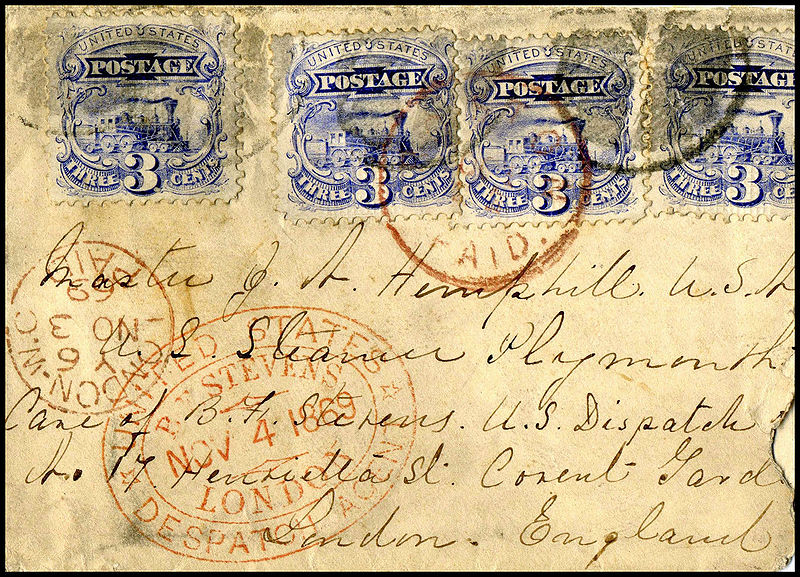 UNITED STATES
POSTAGE
3
THREE CENTS
UNITED STATES
POSTAGE
3
THREE CENTS
UNITED STATES
POSTAGE
3
THREE CENTS
UNITED STATES
POSTAGE
3
THREE CENTS
PAID.
Master J. A. Hemphill. U.S.N
U. S. Steamer Plymouth
Care of B. F. Stevens. U.S. Dispatch
No. 17 Henrietta St. Covent Gard
London. England
LONDON-W.C.
PAID
6
NO 3
69
UNITED STATES
DESPATCH AGENT
B.F. STEVENS
NOV 4 1869
LONDON